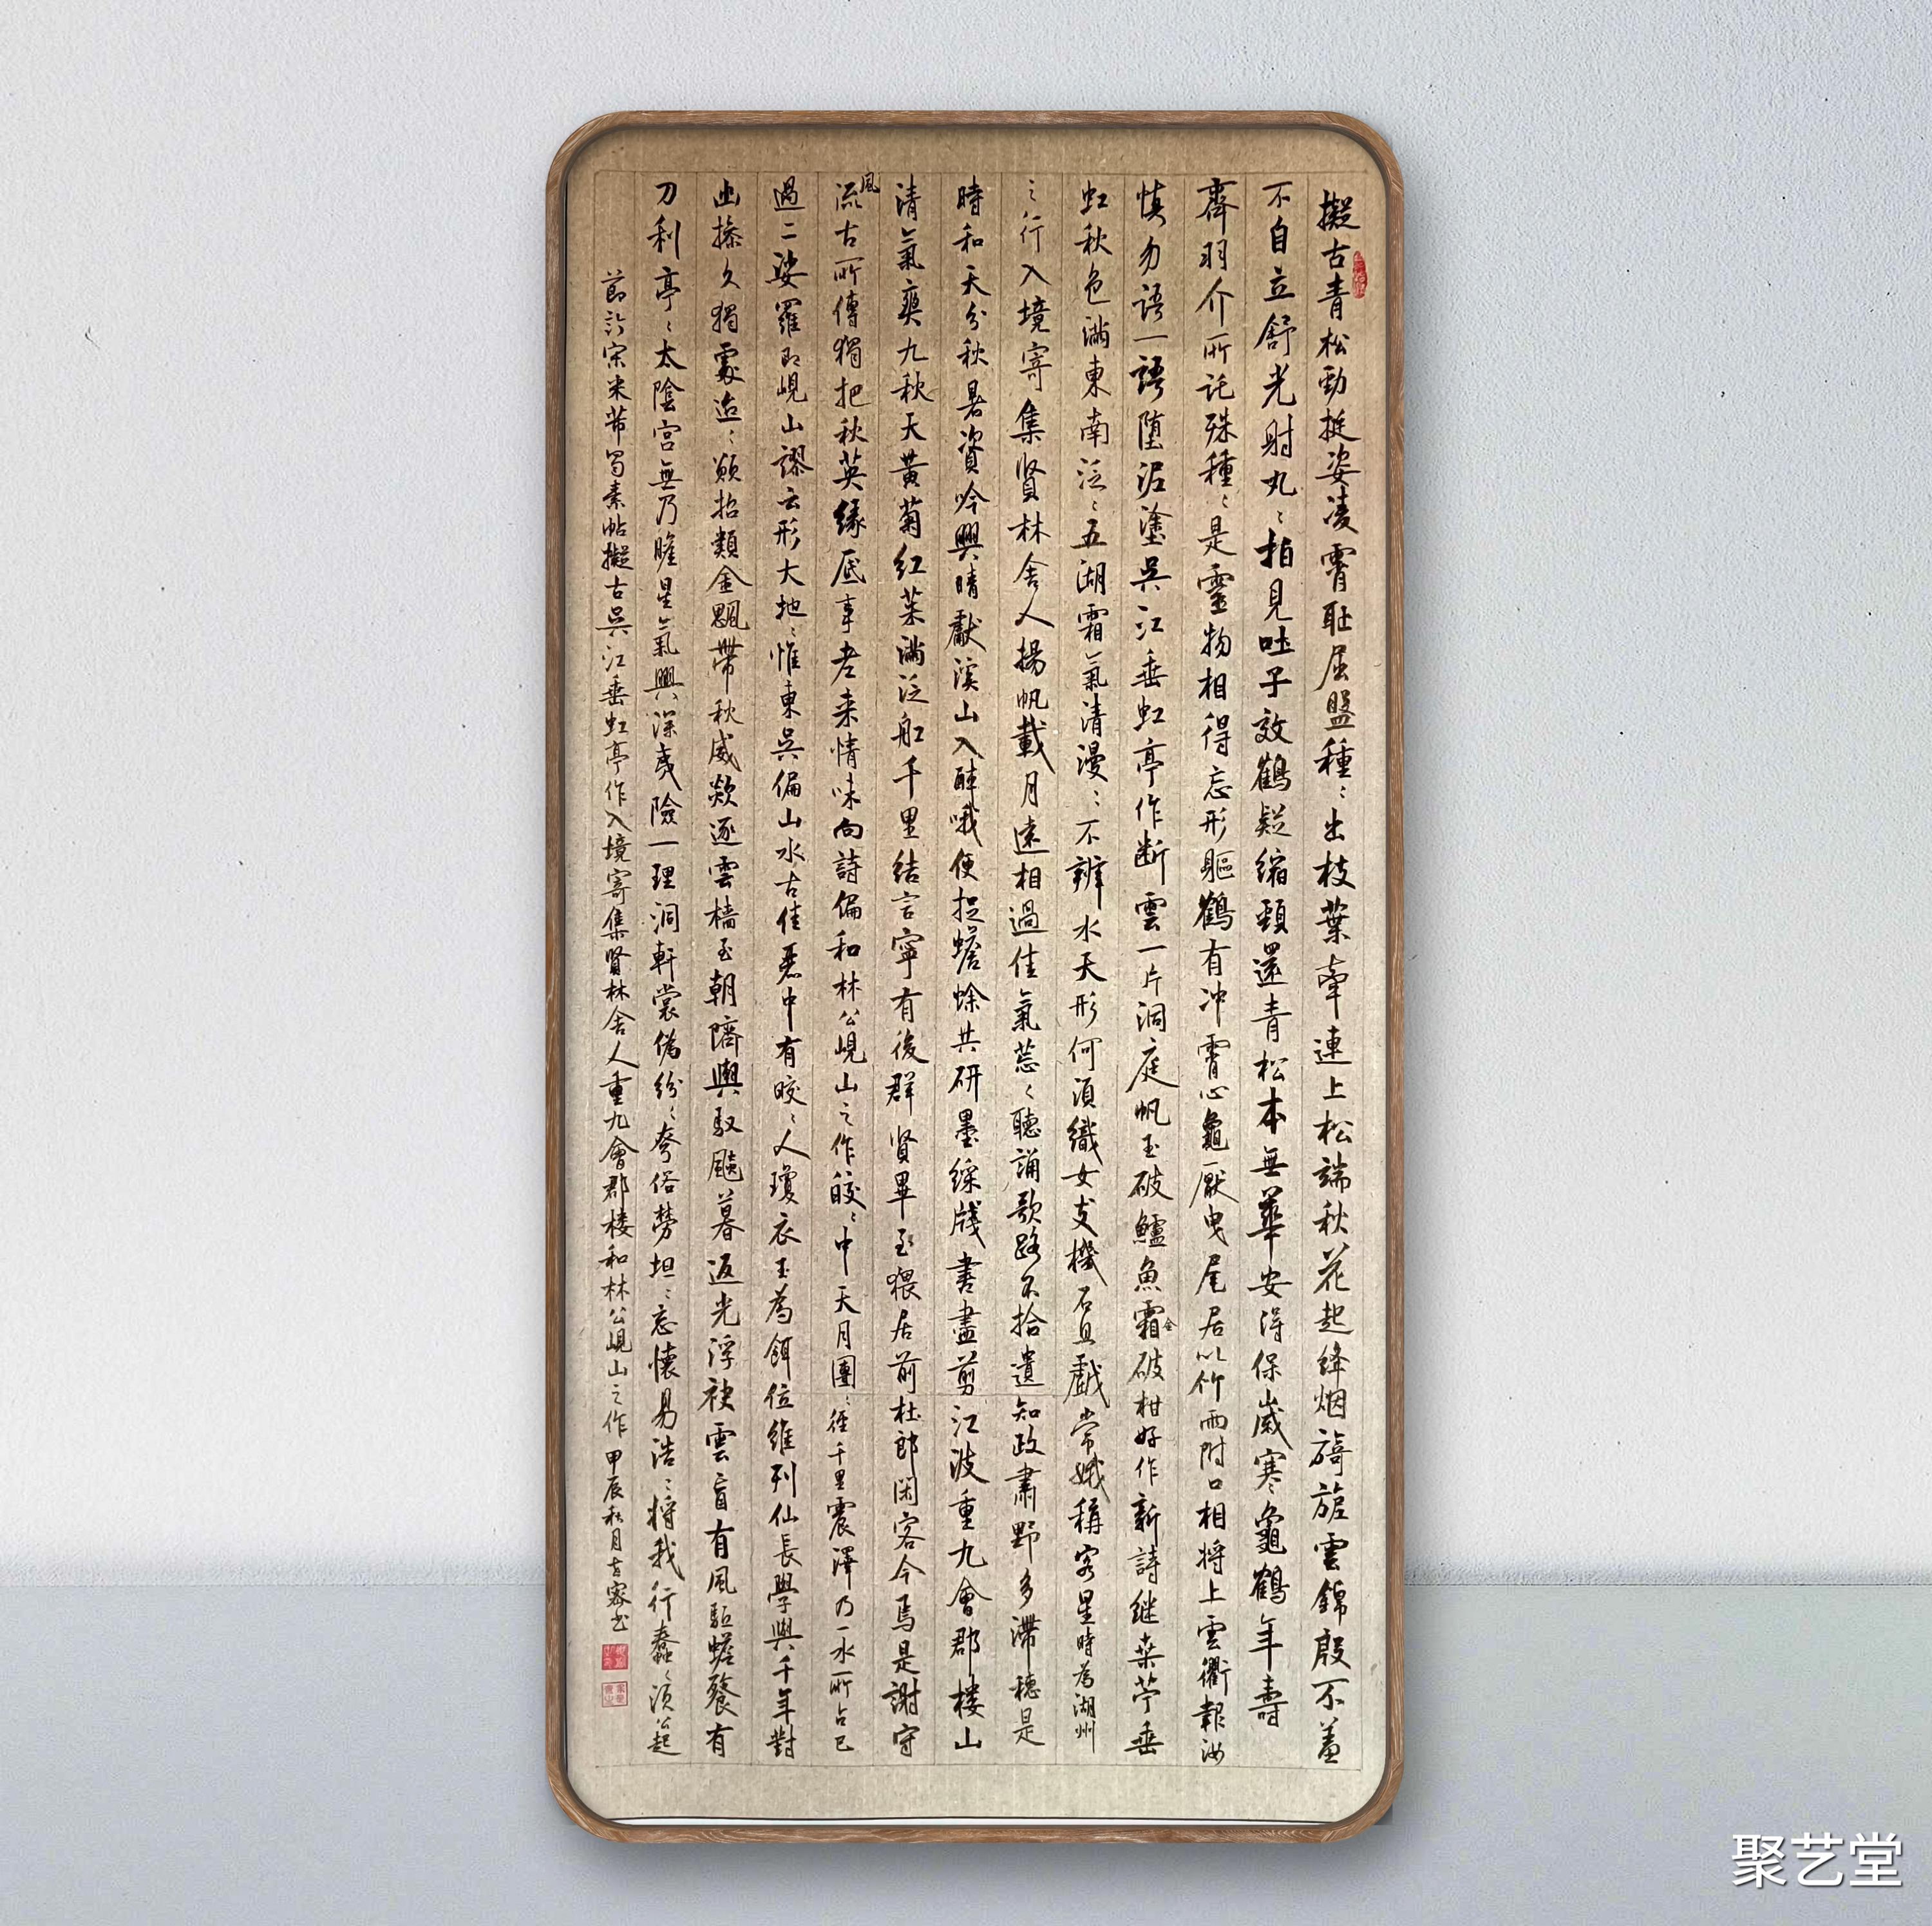 擬古青松勁挺姿凌霄耻屈盤種々出枝葉牽連上松端秋花起絳烟旖旎雲錦殷不羞
不自立舒光射丸々柏見吐子效鶴疑縮頸還青松本無華安得保歲寒龜鶴年壽
齊羽介所託殊種々是靈物相得忘形軀鶴有冲霄心龜厭曳尾居以竹兩附口相將上雲衢報汝
慎勿語一語墮泥塗吳江垂虹亭作断雲一片洞庭帆玉破鱸魚霜金破柑好作新詩継桑苧垂
虹秋色滿東南泛々五湖霜氣清漫々不辨水天形何須織女支機石且戲常娥稱客星時為湖州
之行入境寄集賢林舍人揚帆載月遠相過佳氣蔥々聽誦歌路不拾遺知政肅野多滯穗是
時和天分秋暑資吟興晴獻溪山入醉哦便捉蟾蜍共研墨綵牋書盡剪江波重九會郡楼山
清氣爽九秋天黃菊紅茱滿泛舡千里結言寧有後群賢畢至猥居前杜郎閑客今焉是謝守
風流古所傳獨把秋英緣底事老来情味向詩偏和林公峴山之作皎々中天月團々徑千里震澤乃一水所占已
過二娑羅即峴山謬云形大地々惟東吳偏山水古佳麗中有皎々人瓊衣玉為餌位維列仙長學與千年對
幽操久獨處迢々願招類金颸帶秋威欻逐雲檣至朝隮與馭飈暮返光浮袂雲盲有風驅蟾餮有
刀利亭々太陰宮無乃瞻星氣興深夷險一理洞軒裳偽紛々夸俗勞坦々忘懷易浩々將我行蠢々須公起
節許宋米芾蜀素帖擬古吳江垂虹亭作入境寄集賢林舍人重九會郡楼和林公峴山之作 甲辰秋月
聚艺堂